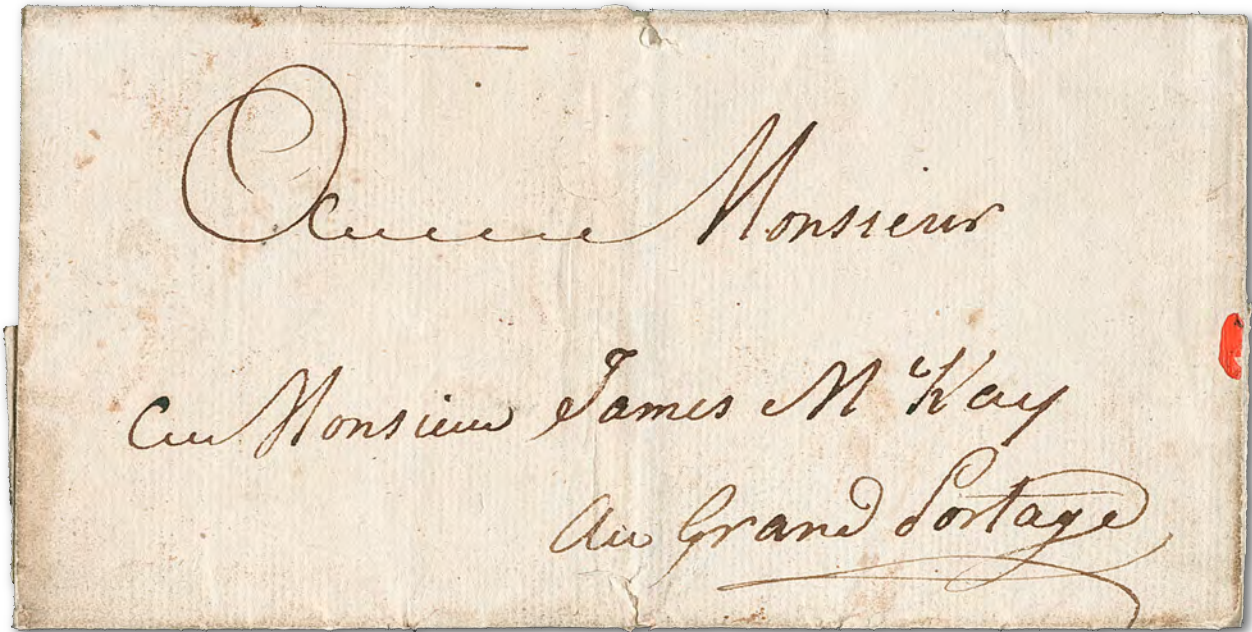 A Monsieur
A Monsieur James McKay
Au Grand Portage